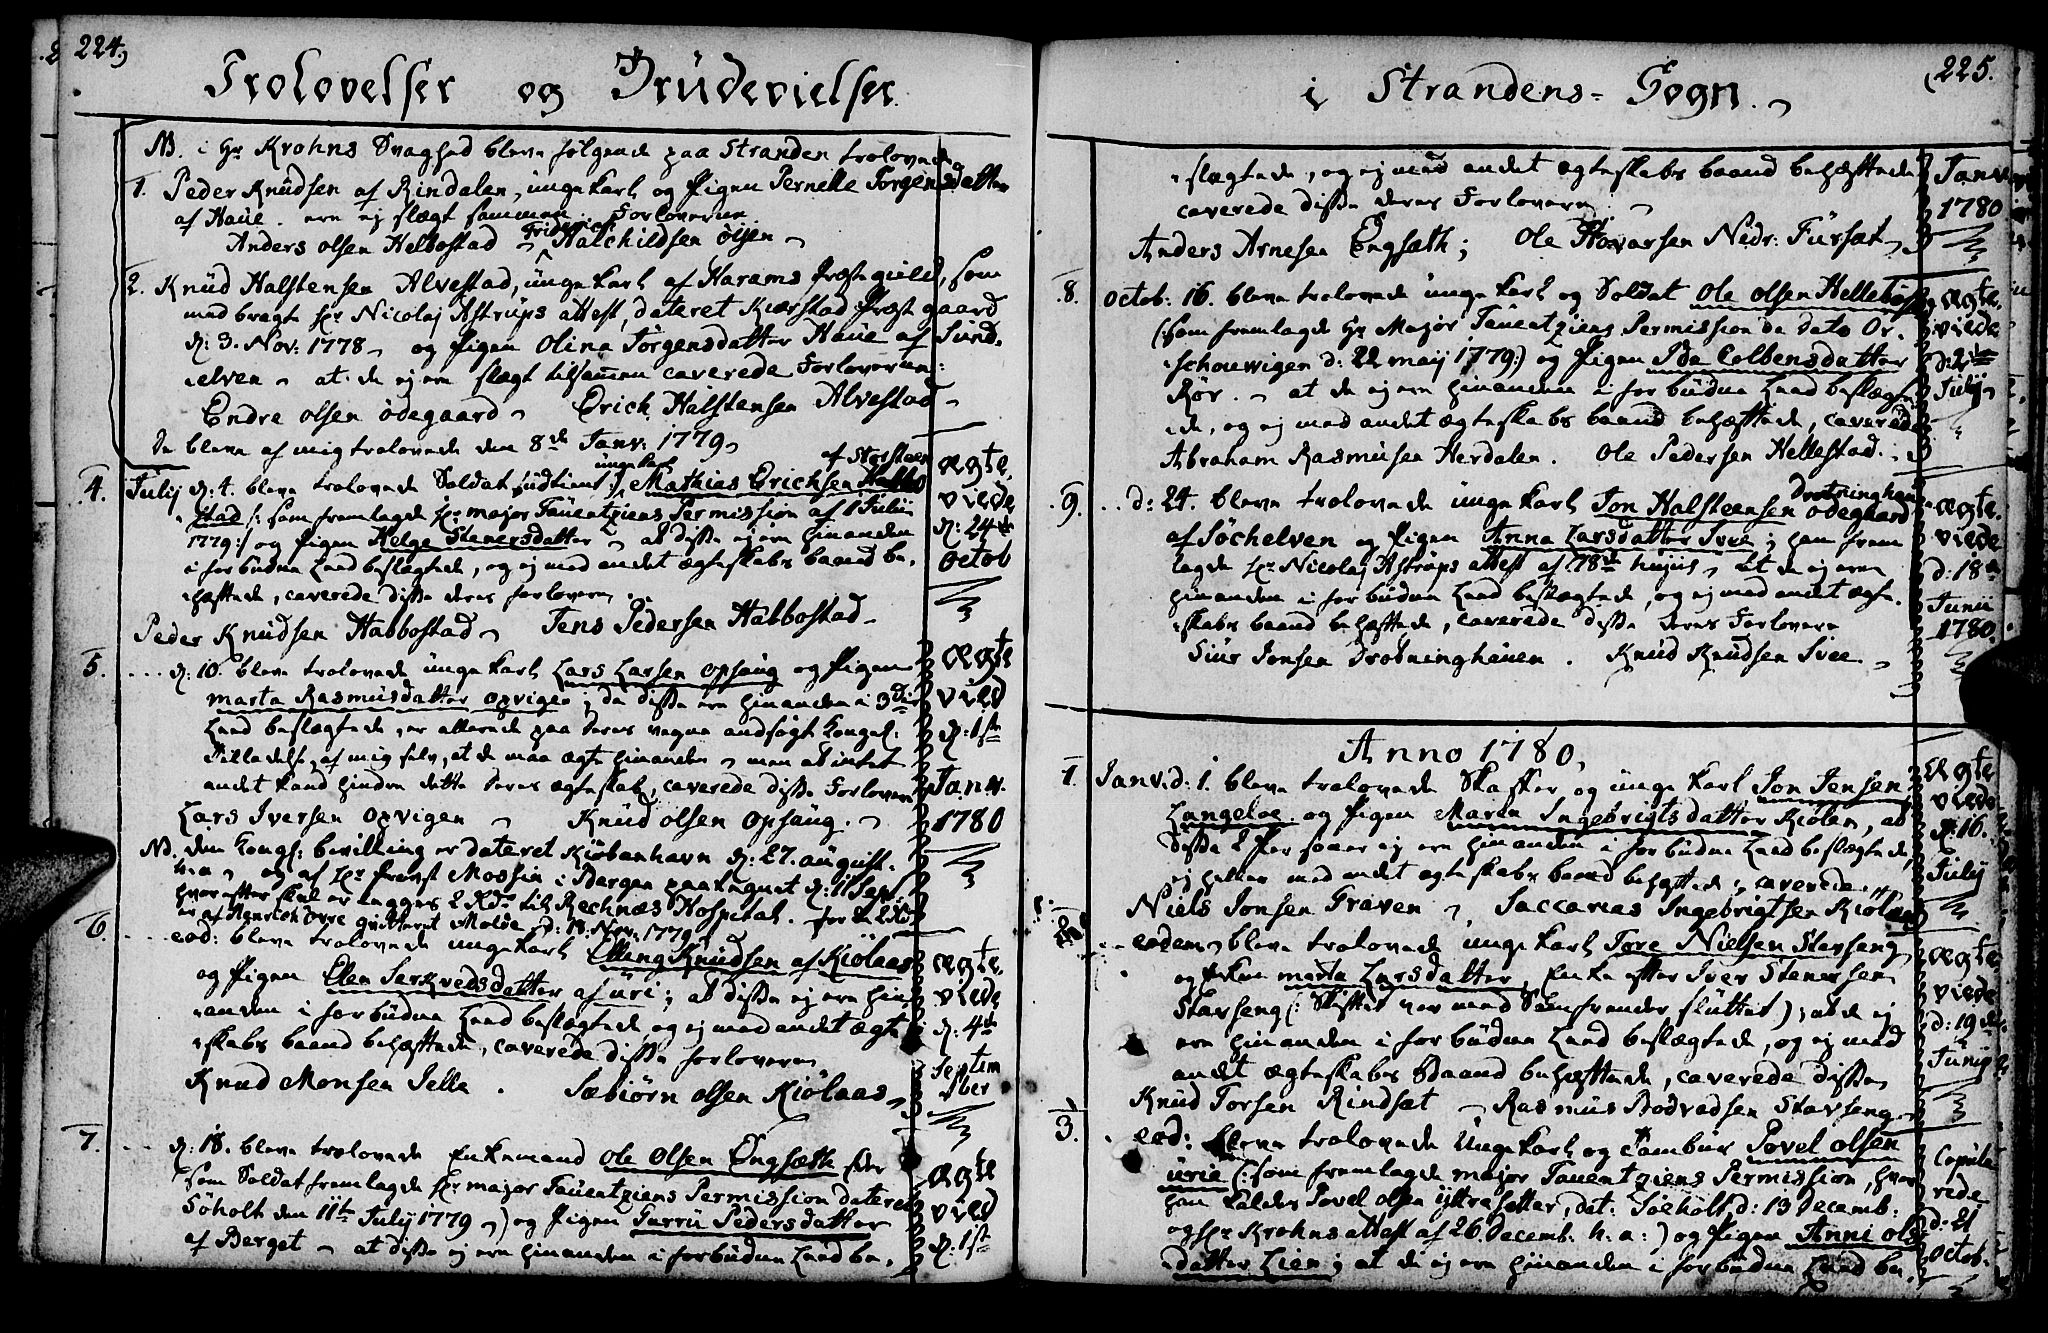 224,
Trolovelser og Brüdevielser
NB. i Hr Krohns Svaghed bleve følgende paa Stranden trolovede
1. Peder Knüdsen af Rindalen, unge karl og Pigen Pernille Jørgensdatter
af Haue. ere ej slægt sammen. Forloverne
Friderich
Anders olsen Helbostad Halchildsen olsen
2. Knüd Halstensen Alvestad, unge karl af Harams Præstegield, som
med bragte Hr Nicolaj Astrüps attest, dateret Kiærstad Præstgaard
d: 3. Nov: 1778, og Pigen Olina Jørgensdatter Haue af Sünd-
elven at de ej ere slægt tilsammen caverede Forloverne:
Endre olsen ødegaard Erich Halstensen Alvestad
De bleve af mig trolovede den 8de Janv: 1779
af Storsteen
unge karl
4. Julij d: 4. bleve trolovede Soldat Mathias Erichsen Habbo
stad (: som fremlagde Hr major Tauentziens Permission af 1 Julii
1779:) og Pigen Helge Stenersdatter at disse ej ere hinanden
i forbüdne Leed beslægtede, og ej med andet ægteskabs baand be-
hæftede, caverede disse deres forlovere
Peder Knüdsen Habbostad Jens Pedersen Habbostad
ægte
viede
d: 24de
octob
5. d: 10. bleve trolovede unge karl Lars Larsen opsaug og Pigen
marta Rasmusdatter opvigen; da disse ere hinanden i 3die
Leed beslægtede, er allerede paa deres vegne andsøgt Kongel:
Tilladelse, af mig selv, at de maa ægte hinanden men at intet
andet kand hindre dette deres ægteskab, caverede disse Forlovere
Lars Iversen opvigen Knüd olsen opsaug.
ægte
vied
d: 1ste
Janv.
1780
NB. den Kongl: bevilling er dateret Kiøbenhavn d: 27. august
h:a og af Hr Provst Mossin i Bergen paategnet d: 11 Sept.
hvorefter skal erlægges 2 Rd til Rechnæs Hospital. for
er af Henrich qvitteret Molde d: 18. Nov. 1779
6. eod: bleve trolovede unge karl Elling Knüdsen af Kiölaas
og Pigen Elen Serkvedsdatter af üri; at disse ej ere hin-
anden i forbüdne Leed beslægtede og ej med andet ægte-
skabs baand behæftede, caverede disse forlovere
Knud Monsen Selle. Sæbiörn olsen Kiölaas
ægte
viede
d: 4de
Septem
ber
7. d: 18. bleve trolovede Enkemand ole olsen Engsæth (der
som Soldat fremlagde Hr major Tauentziens Permission dateret
Söholt den 11te Julij 1779) og Pigen Gurrü Pedersdatter
af Berget at disse ej ere hinanden i forbüdne Leed be-
ægte
vied
d: 1ste
225.
i Strandens Sogn.
slægtede, og ej med andet ægteskabs baand behæftede
caverede disse deres Forlovere
Anders Arnesen Engsæth; Ole Hovarsen Nedr: Fürsæt
Janv
1780
8. octob: 16. bleve trolovede unge karl og Soldat ole olsen Hellebost
(som fremlagde Hr Major Tauentziens Permission de dato Or-
schouwigen d: 22 maij 1779:) og Pigen Ida Colbensdatter
Rör. at de ej ere hinanden i forbüdne Leed beslægte-
de, og ej med andet ægteskabs baand behæftede, caverede
Abraham Rasmusen Herdalen. Ole Pedersen Hellestad.
ægte
viede
d: 2
Julij
Drotninghaue
9. d: 24. bleve trolovede unge karl Jon Halsteensen ödegaard
af Söchelven og Pigen Anna Larsdatter Svee; han frem
lagde Hr Nicolaj Astrüps attest af 18de hujus at de ej ere
hinanden i forbüdne Leed beslægtede, og ej med andet ægte-
skabs baand behæftede, caverede disse deres Forlovere
Siur Jonsen Drotninghauen. Knüd Knüdsen Svee.
ægte
viede
d: 18de
Junii
1780.
Anno 1780,
1. Janv: d: 1. bleve trolovede Skafter og unge karl Jon Jensen
Langeloe og Pigen Maren Ingebrigtsdatter Kiölen, at
disse 2 Personer ej ere hinanden i forbüdne Leed beslægtede,
ej heller med andet ægteskabs baand behæftede, caverede
Niels Jonsen Graven, Saccarias Ingebrigtsen Kiölaas
ægte
viede
d: 16.
Julij
eodem bleve trolovede unge karl Tore Nielsen Stavseng
og Enken marta Larsdatter, Enke efter Iver Stenersen
Stavseng (: Skiftet var med Sönfrender slüttet); at de ej
ere hinanden i forbüdne Leed beslægtede, og ej med
andet ægteskabs Baand behæftede, caverede disse
Knüd Torsen Rindset Rasmus Bodvedsen Stavseng
ægte
viede
d: 19de
Junij
3. eod: bleve trolovede unge karl og Tambur Povel olsen
ürie (: som fremlagde major Tauentziens Permission, hvor
han kaldes Povel olsen ÿttresetter, dat: Söeholt, d: 13 Decemb:
og Hr Krohns attest af 26. Decemb. h. a:) og Pigen Anni ols-
datter Lien; at de ej ere hinanden i forbüdne Leed be-
Copüle
rede
d: 21
octob.